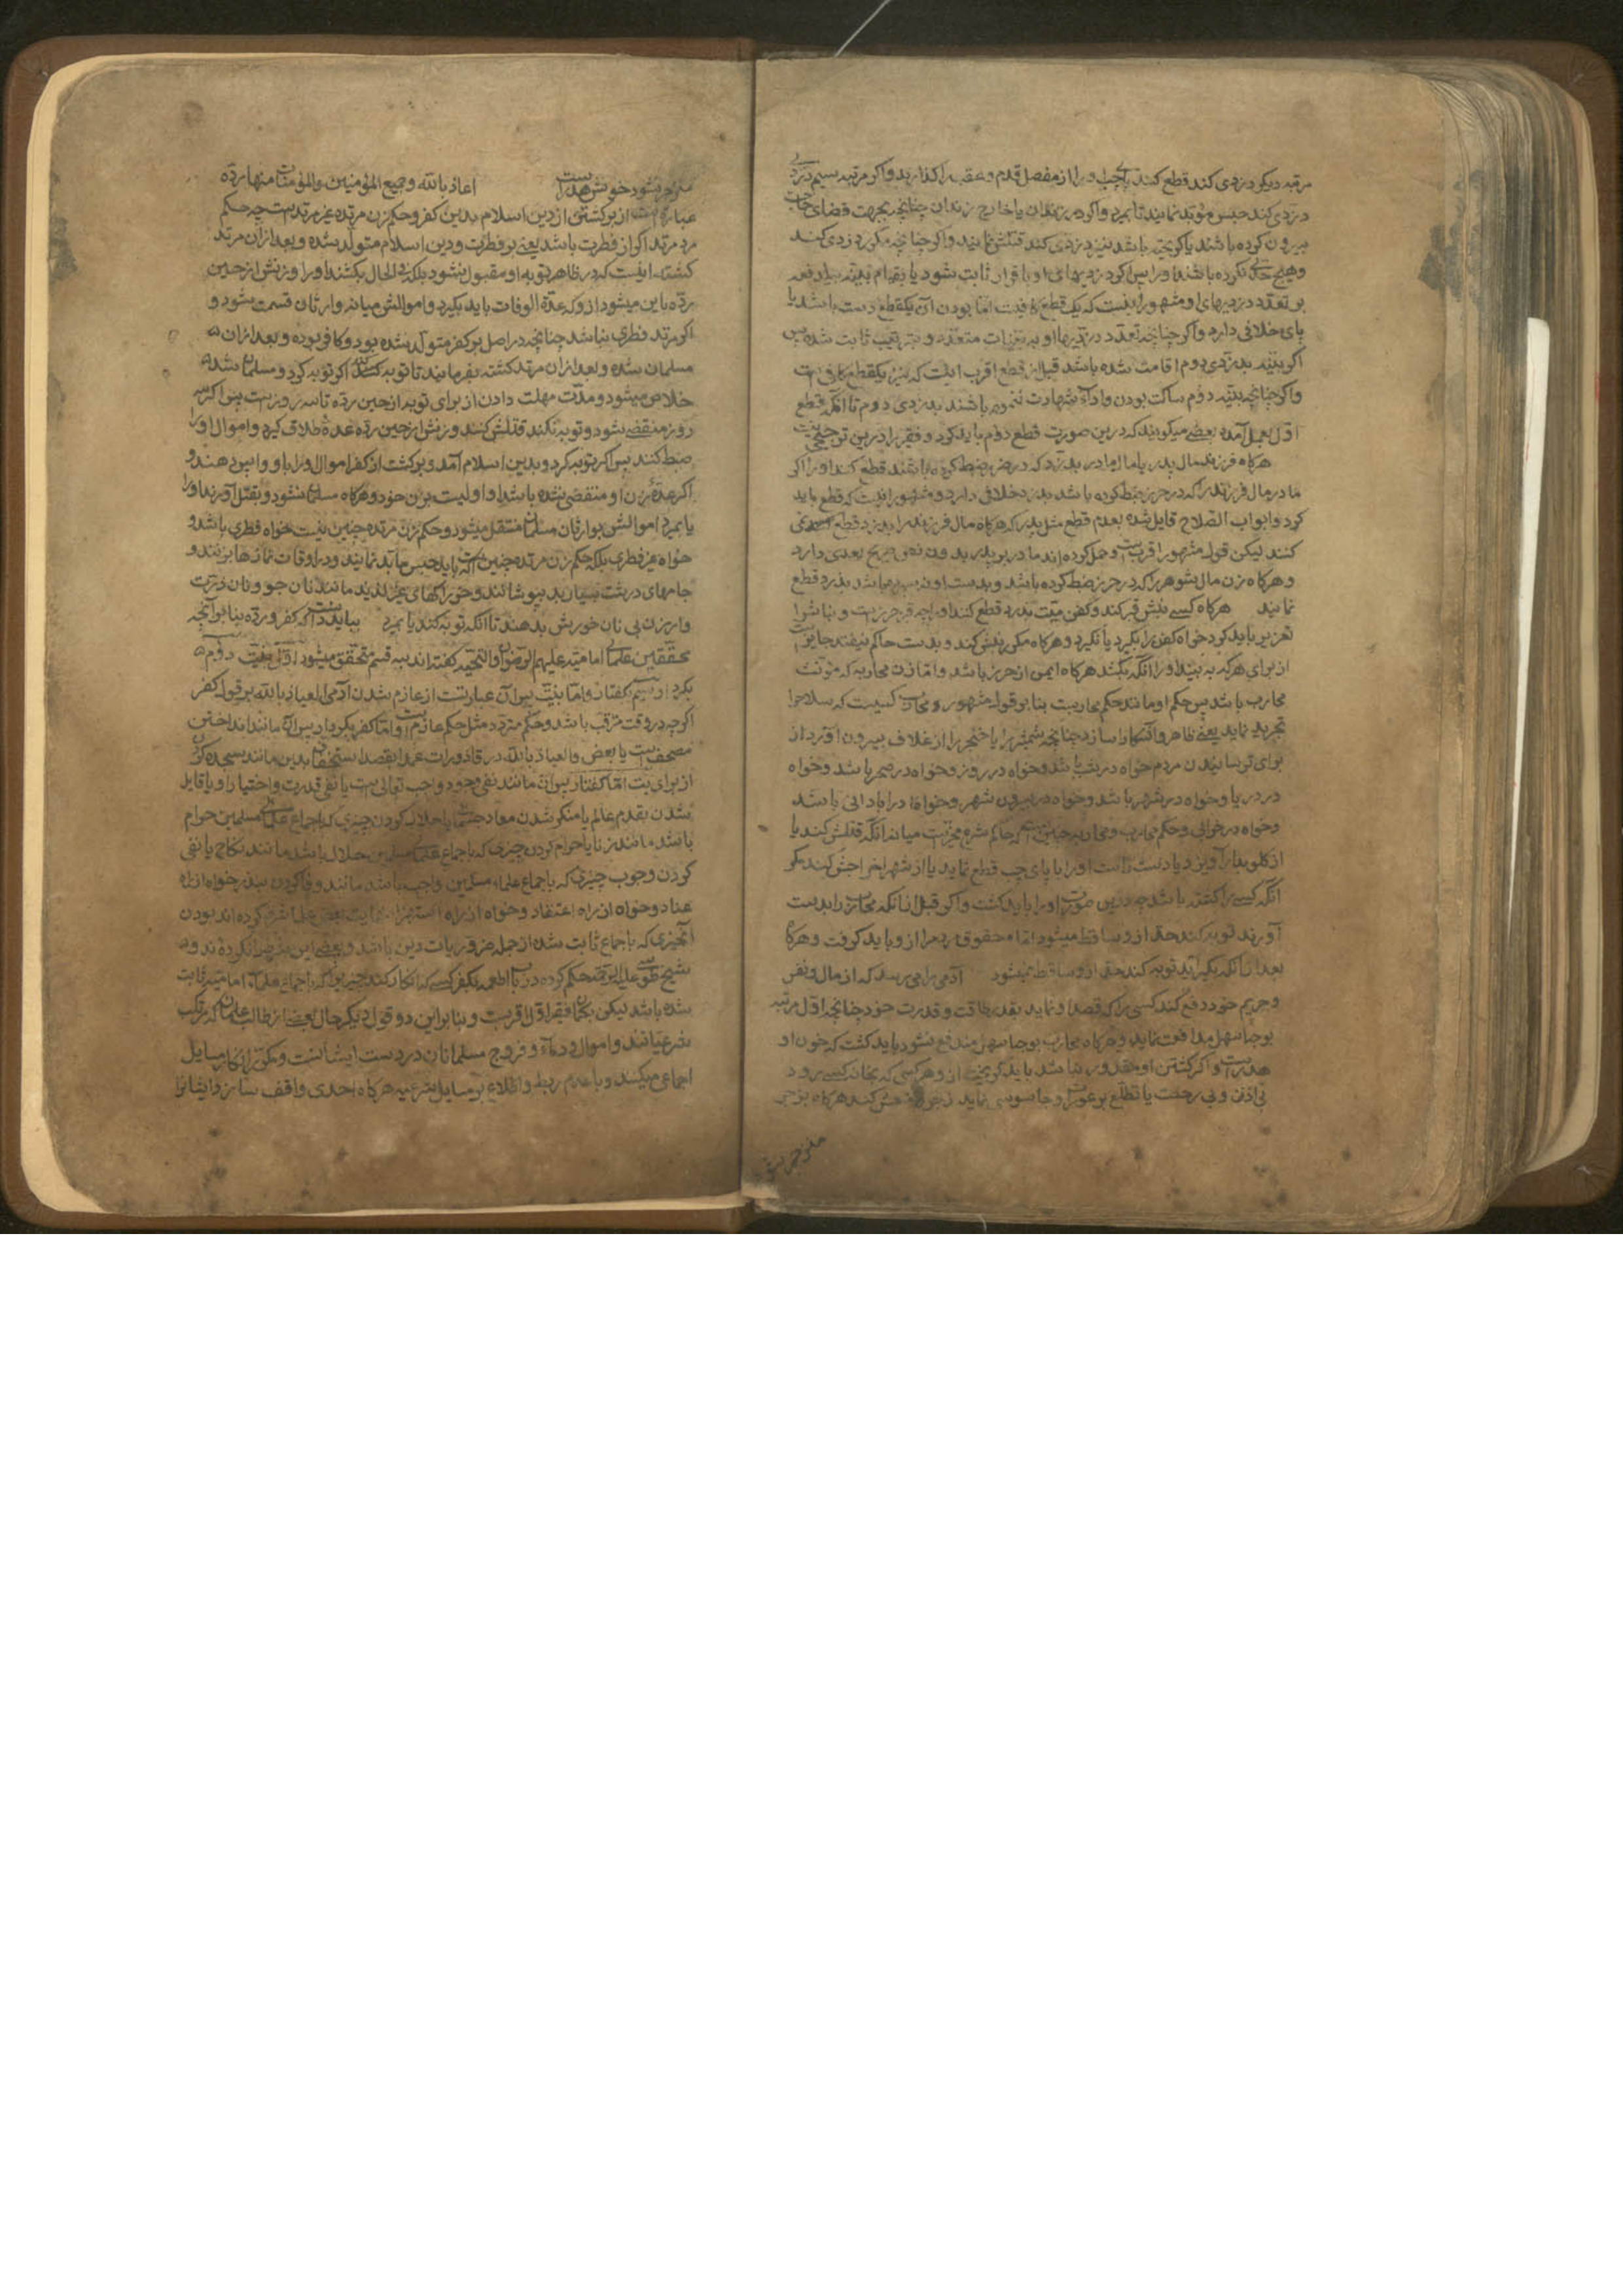 مرتبه دیکر دزدی کند قطع کنند پای چپ او را از مفصل قدم و عقب را کذارند و اکر مرتبه سیم دزدی
دزدی کند حبس مؤبد نمایند تا بمیرد و اکر در زندان یا خارج زندان چنانچه بجهت قضای حاجت
بیرون کرده باشند یا کریخته باشد نیز دزدی کند قتلش نمایند و اکر چنانچه مکرر دزدی کند
و هیچ حدی نکرده باشند او را پس اکر دزدیهای او باقرار ثابت شود یا بقیام بینه بیکدفعه
بر تعدد دزدیهای او مشهور اینست که یک قطع کافیست اما بودن آن یکقطع دست باشد یا
پای خلافی دارد و اکر چنانچه تعدد دزدیها او به بینات متعدده و بترتیب ثابت شده پس
اکر بینه بدزدی دوم اقامت شده باشد قبل از قطع اقرب اینست که نیز یکقطع کافی است
و اکر چنانچه بینه دوم ساکت بودن و اداء شهادت ننموده باشند بدزدی دوم تا آنکه قطع
اول بعمل آمده بعضی میکویند که درین صورت قطع دوم باید کرد و فقیر را درین ترجیحی نیست
هرکاه فرزند مال پدر یا مال مادر بدزدد که در حرز ضبط کرده باشند قطع کنند او را و اکر
مادر مال فرزند را که در حرز ضبط کرده باشد بدزدد خلافی دارد و مشهور اینست که قطع باید
کرد و ابواب الصلاح قایل شده بعدم قطع مثل پدر که هرکاه مال فرزند را بدزدد قطع نمی
کنند لیکن قول مشهور اقربست و حمل کرده‌اند مادر بر پدر بدون نص صریح بعدی دارد
و هرکاه زن مال شوهر را که در حرز ضبط کرده باشد و بدست او نسپرده باشد بدزدد قطع
نمایند هرکاه کسی نبش قبر کند و کفن میت بدزدد قطع کنند او را چه قبر حرزست و نباش را
تعزیر باید کرد خواه کفن را بکیرد یا نکیرد و هرکاه مکرر نبش کند و بدست حاکم نیفتد جایزست
از برای هرکه به بیند او را آنکه بکشد هرکاه ایمن از حرز باشد و اما زن محاربه که مونث
محارب باشد پس حکم او مانند حکم محاربست بنا بر قول مشهور و محارب کسیست که سلاح را
تجرید نماید یعنی ظاهر و آشکارا سازد چنانچه شمشیر را یا خنجر را از غلاف بیرون آورد از
برای ترسانیدن مردم خواه در شب باشد و خواه در روز و خواه در صحرا باشد و خواه
در دریا و خواه در شهر باشد و خواه در بیرون شهر و خواه در آبادانی باشد
و خواه در خرابی و حکم محارب و محاربه چنین است که حاکم شرع مخیرست میانه آنکه قتلش کند یا
از کلو بدار آویزد یا دست راست او را با پای چپ قطع نماید یا از شهر اخراجش کند مکر
آنکه کسی را کشته باشد چه درین صورت او را باید کشت و اکر قبل از آنکه محارب را بدست
آورند توبه کند حد از و ساقط میشود اما حقوق مردم را از و باید کرفت و هرکاه
بعد از آنکه بکیرند توبه کند حد از و ساقط نمیشود آدمی را می‌رسد که از مال و نفس
و حریم خود دفع کند کسی را که قصد او نماید بقدر طاقت و قدرت خود چنانچه اول مرتبه
بوجه اسهل مدافعت نماید و هرکاه محارب بوجه اسهل مندفع نشود باید کشت که خون او
هدرست و اکر کشتن او مقدور نباشد باید کریخت از و هر کسی که بخانه کسی رود
بی اذن و بی رخصت یا تطلع بر عورات و جاسوسی نماید زجر کند هرکاه بزجر
منزجر نشود
منزجر نشود خونش هدرست اعاذنا بالله و جمیع المؤمنین والمؤمنات منها رده
عبارتست از برکشتن از دین اسلام بدین کفر و حکم زن مرتده غیر مرتدست چه حکم
مرد مرتد اکر از فطرت باشد یعنی بر فطرت و دین اسلام متولد شده و بعد از آن مرتد
کشته اینست که در ظاهر توبه او مقبول نشود بلکه فی الحال بکشند او را و زنش از حین
رده باین میشود از و که عدة الوفات باید بکیرد و اموالش میانه وارثان قسمت شود و
اکر مرتد فطری نباشد چنانچه در اصل بر کفر متولد شده بود و کافر بوده و بعد از آن
مسلمان شده و بعد از آن مرتد کشته بفرمایند تا توبه کند اکر توبه کرد و مسلمان شد
خلاص میشود و مدت مهلت دادن از برای توبه از حین رده تا سه روزست پس اکر سه
روز منقضی شود و توبه نکند قتلش کنند و زنش از حین رده عده طلاق کیرد و اموال او را
ضبط کنند پس اکر توبه کرد و بدین اسلام آمد و برکشت از کفر اموال او را باو واپس دهند و
اکر عده زن او منقضی نشده باشد او اولیست بزن خود و هرکاه مسلمان نشود و بقتل آورند او را
یا بمیرد اموالش بوارثان مسلمان منتقل میشود و حکم زن مرتده چنین نیست خواه فطری باشد و
خواه غیر فطری بلکه حکم زن مرتده چنین است که باید حبس مؤبد نمایند و در اوقات نمازها بزنند و
جامهای درشت بسیار بد بپوشانند و خوراکهای غیر لذیذ مانند نان جو و نان ذرت
و ارزن بی نان خورش بدهند تا آنکه توبه کند یا بمیرد بباید دانست که کفر و رده بنا بر آنچه
محققین علمای امامیه علیهم الرضوان والتحیه کفته‌اند بسه قسم متحقق میشود اول بنیت دوم
بکردار سیم بکفتار و اما بنیت پس آن عبارتست از عازم شدن آدمی العیاذ بالله بر قول کفر
اکرچه در وقت مترقب باشد و حکم متردد مثل حکم عازم است و اما کفر بکردار پس آن مانند انداختن
مصحف است یا بعض والعیاذ بالله در قاذورات عمدا بقصد استخفاف بدین مانند سجده کردن
از برای بت اما کفتار پس آن مانند نفی وجود واجب تعالی است یا نفی قدرت و اختیار او یا قایل
شدن بقدم عالم یا منکر شدن معاد جسمانی یا حلال کردن چیزی که باجماع علمای مسلمین حرام
باشد مانند زنا یا حرام کردن چیزی که باجماع علماء مسلمین حلال باشد مانند نکاح یا نفی
کردن وجوب چیزی که باجماع علماء مسلمین واجب باشد مانند وفا کردن بنذر خواه از راه
عناد و خواه از راه اعتقاد و خواه از راه استهزاء و بعضی علما شرط کرده‌اند بودن
آنچیزی که باجماع ثابت شده از جمله ضروریات دین باشد و بعضی این شرط نکرده‌اند و
شیخ طوسی علیه الرحمه حکم کرده در باب اطعمه بکفر کسی که انکار کند چیزی را که باجماع علماء امامیه ثابت
شده باشد لیکن بکمان فقیر اول اقربست و بنا برین دو قول دیکر حال بعضی از طالب علمان که مرتکب
شرعیاتند و اموال و دماء و فروج مسلمانان در دست ایشانست و مکرر انکار مسایل
اجماعی میکنند و با عدم ربط و اطلاع بر مسایل شرعیه هرکاه احدی واقف سازد ایشانرا